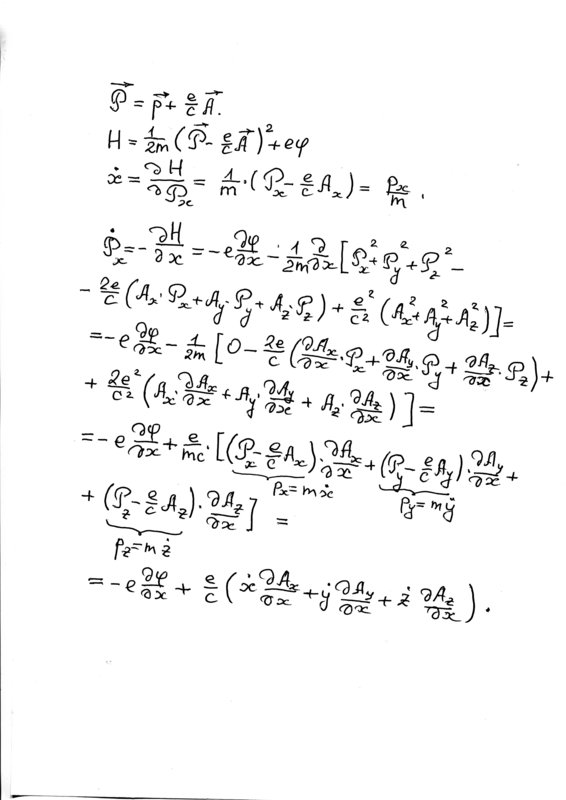 𝒫⃗ = p⃗ + e/c A⃗.
H = 1/2m (𝒫⃗ - e/c A⃗)² + eφ
ẋ = ∂H/∂𝒫ₓ = 1/m · (𝒫ₓ - e/c Aₓ) = pₓ/m .
𝒫̇ₓ = - ∂H/∂x = - e ∂φ/∂x - 1/2m ∂/∂x [𝒫ₓ² + 𝒫_y² + 𝒫_z² -
- 2e/c (Aₓ · 𝒫ₓ + A_y · 𝒫_y + A_z · 𝒫_z) + e²/c² (Aₓ² + A_y² + A_z²)] =
= - e ∂φ/∂x - 1/2m [0 - 2e/c (∂Aₓ/∂x · 𝒫ₓ + ∂A_y/∂x · 𝒫_y + ∂A_z/∂x · 𝒫_z) +
+ 2e²/c² (Aₓ · ∂Aₓ/∂x + A_y · ∂A_y/∂x + A_z · ∂A_z/∂x)] =
= - e ∂φ/∂x + e/mc · [(𝒫ₓ - e/c Aₓ) · ∂Aₓ/∂x + (𝒫_y - e/c A_y) · ∂A_y/∂x +
pₓ = mẋ p_y = mẏ
+ (𝒫_z - e/c A_z) · ∂A_z/∂x] =
p_z = mż
= - e ∂φ/∂x + e/c (ẋ ∂Aₓ/∂x + ẏ ∂A_y/∂x + ż ∂A_z/∂x) .